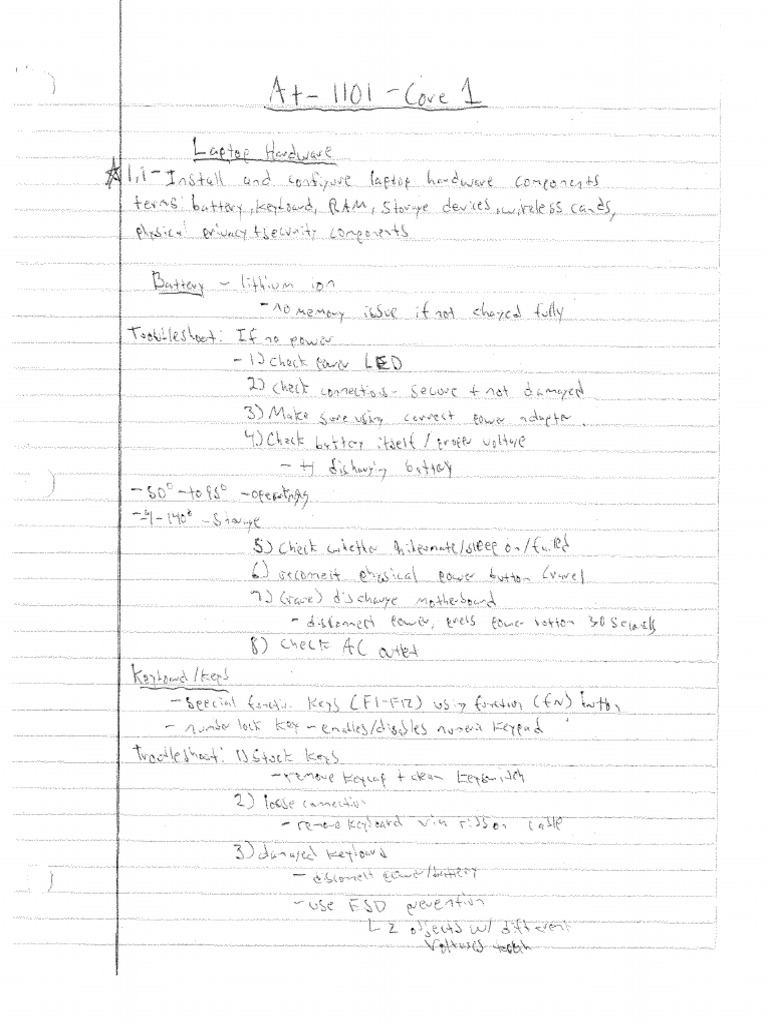 A+ - 1101 - Core 1
Laptop Hardware
☆ 1.1 - Install and configure laptop hardware components
terms: battery, keyboard, RAM, storage devices, wireless cards,
physical privacy + security components
Battery - lithium ion
- no memory issue if not charged fully
Troubleshoot: If no power
- 1) check power LED
2) check connections - secure + not damaged
3) Make sure using correct power adapter.
4) Check battery itself / proper voltage
- try discharging battery
- 50° - to 95° - operating
- -4 - 140° - Storage
5) Check whether hibernate/sleep on/failed
6) reconnect physical power button (rare)
7) (rare) discharge motherboard
- disconnect power, press power button 30 seconds
8) check AC outlet
Keyboard/keys
- special function keys (F1-F12) using function (FN) button
- number lock key - enables/disables numeric keypad
Troubleshoot: 1) Stuck keys
- remove keycap + clean keyswitch
2) loose connection
- remove keyboard via ribbon cable
3) damaged keyboard
- disconnect power/battery
- use ESD prevention
L 2 objects w/ different
voltages touch